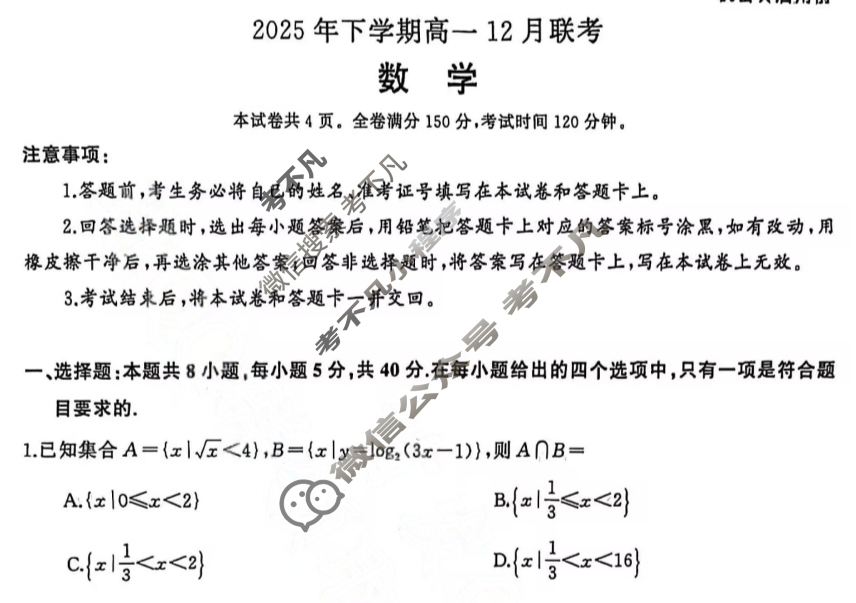 2025 年下学期高一 12 月联考
数 学
本试卷共 4 页。全卷满分 150 分,考试时间 120 分钟。
注意事项:
1.答题前,考生务必将自己的姓名、准考证号填写在本试卷和答题卡上。
2.回答选择题时,选出每小题答案后,用铅笔把答题卡上对应的答案标号涂黑,如有改动,用
橡皮擦干净后,再选涂其他答案;回答非选择题时,将答案写在答题卡上,写在本试卷上无效。
3.考试结束后,将本试卷和答题卡一并交回。
一、选择题:本题共 8 小题,每小题 5 分,共 40 分.在每小题给出的四个选项中,只有一项是符合题
目要求的.
1.已知集合 A={x|√x<4},B={x|y=log₂(3x-1)},则 A∩B=
A.{x|0≤x<2}
B.{x|1/3≤x<2}
C.{x|1/3<x<2}
D.{x|1/3<x<16}
考不凡
微信搜索 考不凡
考不凡小程序
微信公众号 考不凡